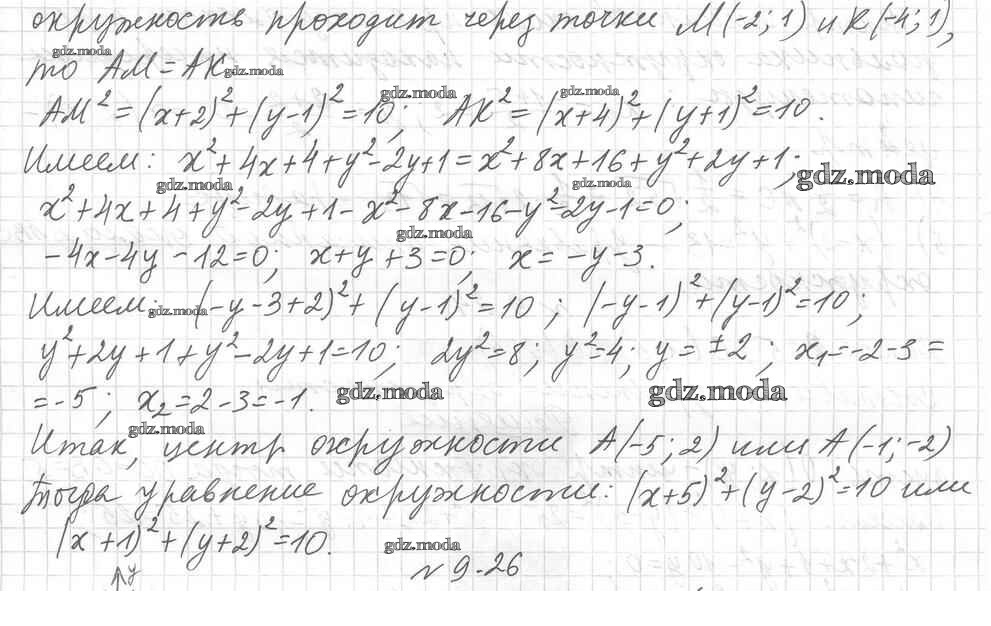 окружность проходит через точки М(-2; 1) и К(-4; 1),
gdz.moda
то АМ = АК. gdz.moda
gdz.moda gdz.moda
АМ² = (x+2)² + (y-1)² = 10; АК² = (x+4)² + (y+1)² = 10.
Имеем: x² + 4x + 4 + y² - 2y + 1 = x² + 8x + 16 + y² + 2y + 1; gdz.moda
gdz.moda gdz.moda
x² + 4x + 4 + y² - 2y + 1 - x² - 8x - 16 - y² - 2y - 1 = 0;
gdz.moda
-4x - 4y - 12 = 0; x + y + 3 = 0; x = -y - 3.
Имеем: gdz.moda (-y - 3 + 2)² + (y-1)² = 10; (-y-1)² + (y-1)² = 10;
y² + 2y + 1 + y² - 2y + 1 = 10; 2y² = 8; y² = 4; y = ±2; x₁ = -2 - 3 =
= -5; x₂ = 2 - 3 = -1. gdz.moda gdz.moda
gdz.moda
Итак, центр окружности А(-5; 2) или А(-1; -2)
Тогда уравнение окружности: (x+5)² + (y-2)² = 10 или
(x+1)² + (y+2)² = 10.
gdz.moda
№ 9.26
y